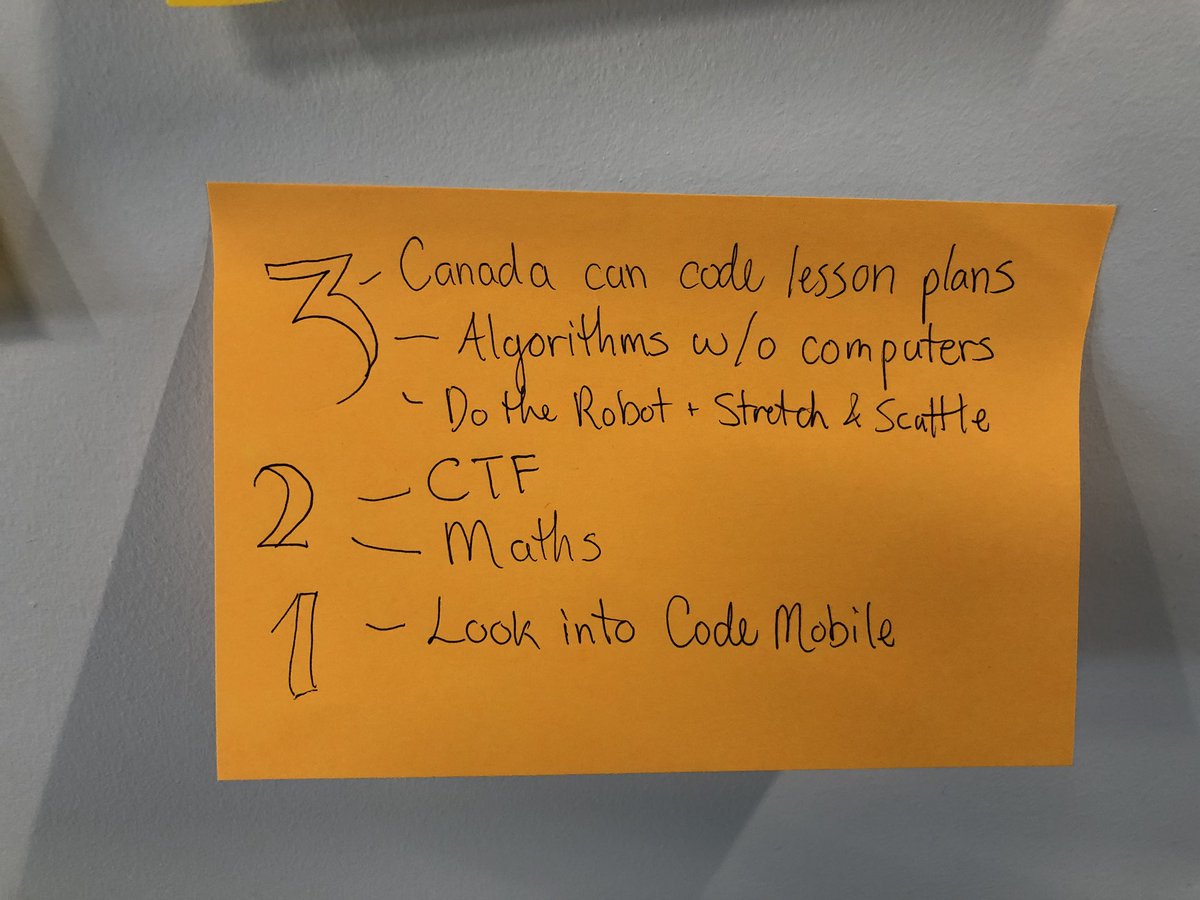 3 - Canada can code lesson plans
- Algorithms w/o computers
- Do the Robot + Stretch & Scattle
2 - CTF
- Maths
1 - Look into Code Mobile